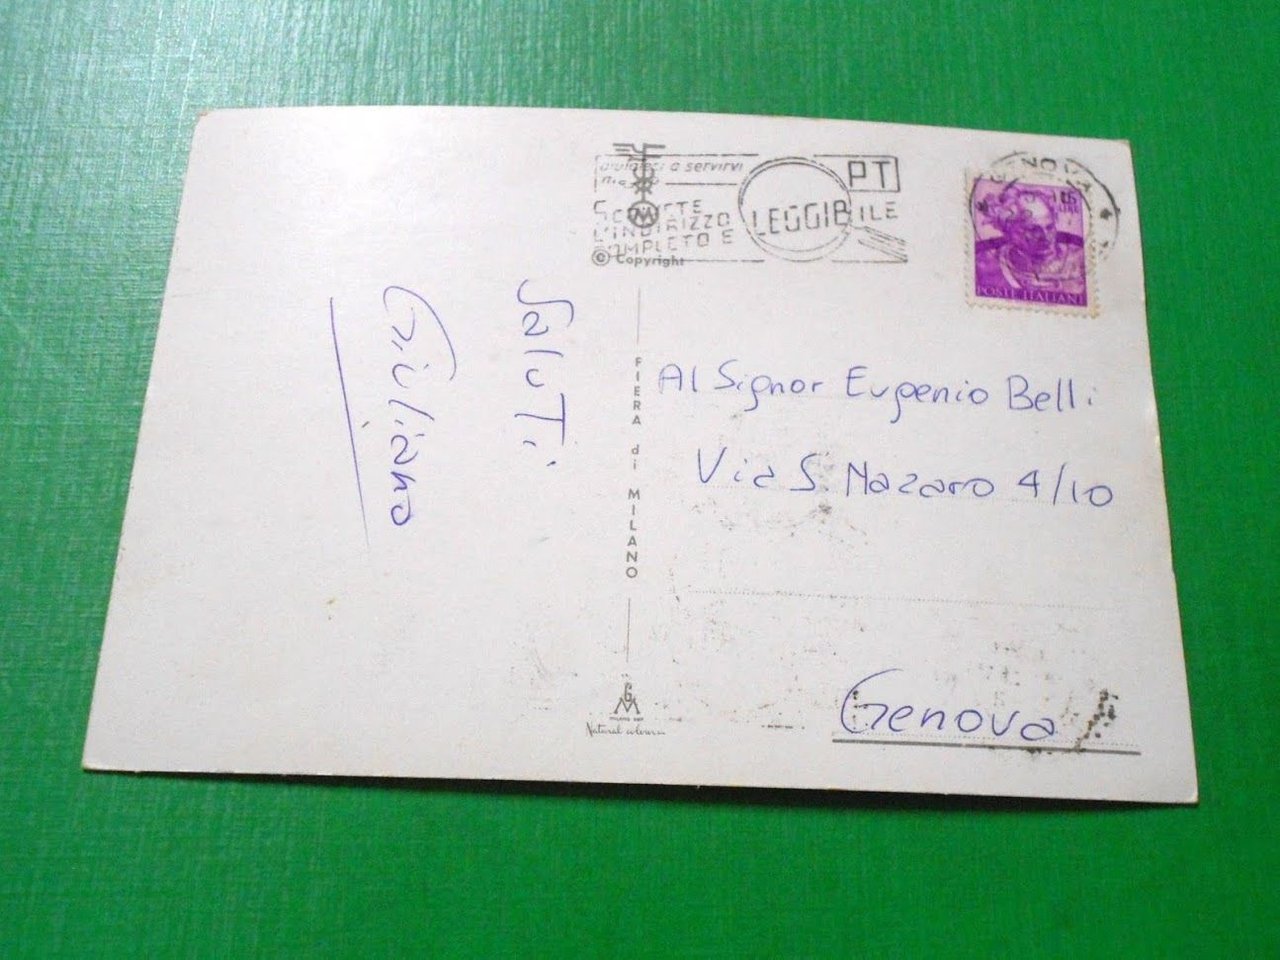 aiutateci a servirvi
meglio
SCRIVETE
L'INDIRIZZO
COMPLETO E
LEGGIBILE
PT
© Copyright
GENOVA
15
LIRE
POSTE ITALIANE
Saluti
Giuliano
FIERA di MILANO
Al Signor Eugenio Belli
Via S. Nazaro 4/10
Genova
GM
Natural colour